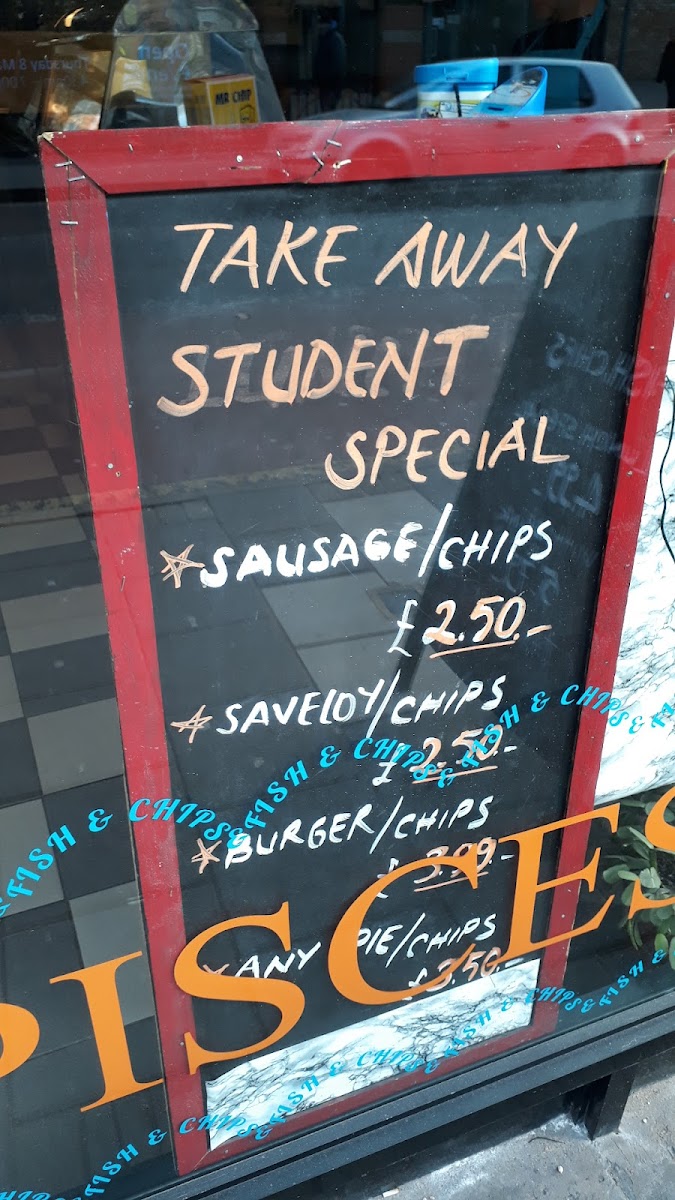 Open
Thursday 8 Ma
MR CHIP
TAKE AWAY
STUDENT
SPECIAL
SAUSAGE/CHIPS
£2.50.-
SAVELOY/CHIPS
£2.50.-
BURGER/CHIPS
£3.99.-
ANY PIE/CHIPS
£3.50.-
FISH & CHIPS & FISH & CHIPS & FISH & CHIPS & FI
PISCES
CHIPS & FISH & CHIPS & FISH & CHIPS & FISH &